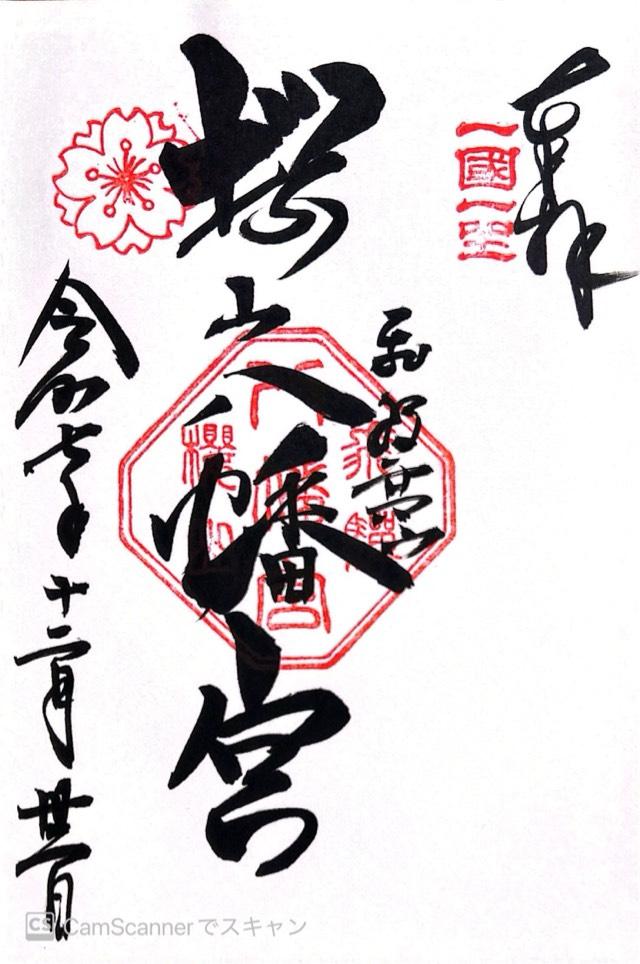 奉拝
飛騨高山
桜山八幡宮
飛騨
八幡宮
櫻山
令和七年十二月
CS CamScannerでスキャン